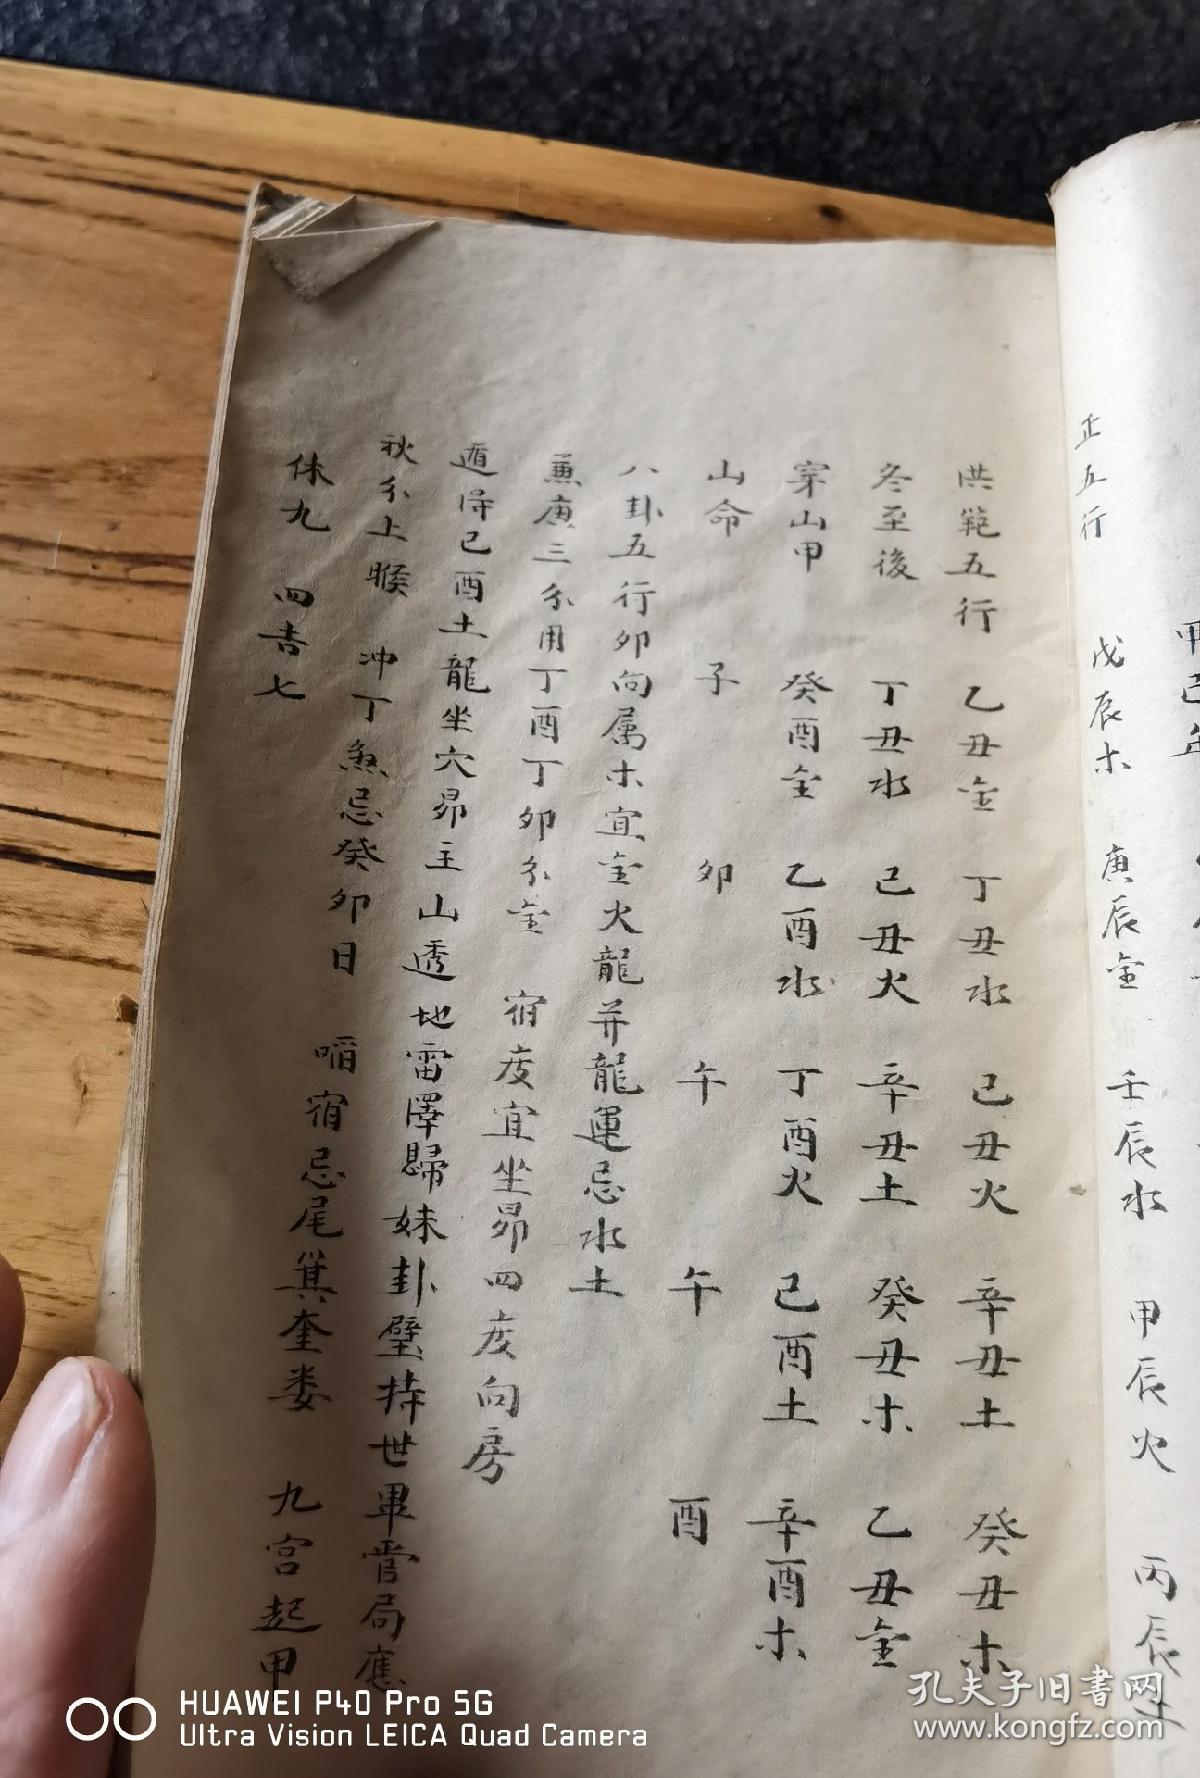 甲己年
正五行 戊辰木 庚辰金 壬辰水 甲辰火 丙辰土
洪範五行 乙丑金 丁丑水 己丑火 辛丑土 癸丑木
冬至後 丁丑水 己丑火 辛丑土 癸丑木 乙丑金
穿山甲 癸酉金 乙酉水 丁酉火 己酉土 辛酉木
山命 子 卯 午 午 酉
八卦五行卯向属木宜金火龍并龍運忌水土
兼庚三分用丁酉丁卯分金 宿度宜坐昴四度向房
遁得己酉土龍坐穴昴主山透地雷澤歸妹卦壁持世畢管局應
秋分上候 冲丁煞忌癸卯日 宿忌尾箕奎娄 九宫起甲
休九 四吉七
HUAWEI P40 Pro 5G
Ultra Vision LEICA Quad Camera
孔夫子旧書网
www.kongfz.com